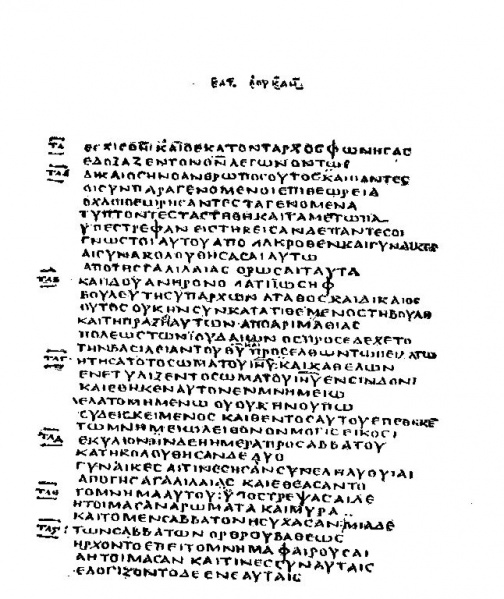 ΤΑ ΕϹΧΙϹΘΗ ΚΑΙΟΕΚΑΤΟΝΤΑΡΧΟϹΦΩΝΗϹΑϹ
ΕΔΟΞΑΖΕΝΤΟΝΘΝΛΕΓΩΝΟΝΤΩϹ
ΔΙΚΑΙΟϹΗΝΟΑΝΘΡΩΠΟϹΟΥΤΟϹΚΑΙΠΑΝΤΕϹ
ΟΙϹΥΝΠΑΡΑΓΕΝΟΜΕΝΟΙΕΠΙΘΕΩΡΕΙΑ
ΟΧΛΟΙΘΕΩΡΗϹΑΝΤΕϹΤΑΓΕΝΟΜΕΝΑ
ΤΥΠΤΟΝΤΕϹΤΑϹΤΗΘΗΚΑΙΤΑΜΕΤΩΠΑ
ΥΠΕϹΤΡΕΦΑΝΕΙϹΤΗΚΕΙϹΑΝΔΕΠΑΝΤΕϹΟΙ
ΓΝΩϹΤΟΙΑΥΤΟΥΑΠΟΜΑΚΡΟΘΕΝΚΑΙΓΥΝΑΙΚΕϹ
ΑΙϹΥΝΑΚΟΛΟΥΘΗϹΑϹΑΙΑΥΤΩ
ΑΠΟΤΗϹΓΑΛΙΛΑΙΑϹΟΡΩϹΑΙΤΑΥΤΑ
ΚΑΙΙΔΟΥΑΝΗΡΟΝΟΜΑΤΙΙΩϹΗΦ
ΒΟΥΛΕΥΤΗϹΥΠΑΡΧΩΝΑΓΑΘΟϹΚΑΙΔΙΚΑΙΟϹ
ΟΥΤΟϹΟΥΚΗΝϹΥΝΚΑΤΑΤΙΘΕΜΕΝΟϹΤΗΒΟΥΛΗ
ΚΑΙΤΗΠΡΑΞΗΑΥΤΩΝΑΠΟΑΡΙΜΑΘΙΑϹ
ΠΟΛΕΩϹΤΩΝΙΟΥΔΑΙΩΝΟϹΠΡΟϹΕΔΕΧΕΤΟ
ΤΗΝΒΑϹΙΛΕΙΑΝΤΟΥΘΥ ΠΡΟϹΕΛΘΩΝΤΩΠΕΙΛΑΤΩ
ΗΤΗϹΑΤΟΤΟϹΩΜΑΤΟΥΙΗΥ:ΚΑΙΚΑΘΕΛΩΝ
ΕΝΕΤΥΛΙΞΕΝΤΟϹΩΜΑΤΟΥΙΗΥΕΝϹΙΝΔΟΝΙ
ΚΑΙΕΘΗΚΕΝΑΥΤΟΝΕΝΜΝΗΜΕΙΩ
ΛΕΛΑΤΟΜΗΜΕΝΩΟΥΟΥΚΗΝΟΥΠΩ
ΟΥΔΕΙϹΚΕΙΜΕΝΟϹΚΑΙΘΕΝΤΟϹΑΥΤΟΥΕΠΕΘΗΚΕ
ΤΩΜΝΗΜΕΙΩΛΕΙΘΟΝΟΝΜΟΓΙϹΕΙΚΟϹΙ
ΕΚΥΛΙΟΝΗΝΔΕΗΗΜΕΡΑΠΡΟϹΑΒΒΑΤΟΥ
ΚΑΤΗΚΟΛΟΥΘΗϹΑΝΔΕΔΥΟ
ΓΥΝΑΙΚΕϹΑΙΤΙΝΕϹΗϹΑΝϹΥΝΕΛΗΛΥΘΥΙΑΙ
ΑΠΟΤΗϹΓΑΛΙΛΑΙΑϹΚΑΙΕΘΕΑϹΑΝΤΟ
ΤΟΜΝΗΜΑΑΥΤΟΥ:ΥΠΟϹΤΡΕΨΑϹΑΙΔΕ
ΗΤΟΙΜΑϹΑΝΑΡΩΜΑΤΑΚΑΙΜΥΡΑ
ΚΑΙΤΟΜΕΝϹΑΒΒΑΤΟΝΗϹΥΧΑϹΑΝ:ΜΙΑΔΕ
ΤΩΝϹΑΒΒΑΤΩΝΟΡΘΡΟΥΒΑΘΕΩϹ
ΗΡΧΟΝΤΟΕΠΕΙΤΟΜΝΗΜΑΦΑΙΡΟΥϹΑΙ
ΑΗΤΟΙΜΑϹΑΝΚΑΙΤΙΝΕϹϹΥΝΑΥΤΑΙϹ
ΕΛΟΓΙΖΟΝΤΟΔΕΕΝΕΑΥΤΑΙϹ